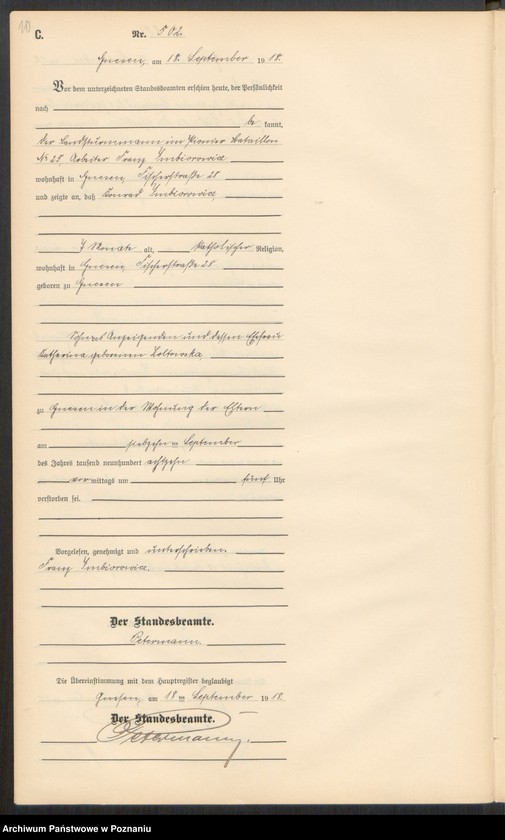 10
C.
Nr. 502.
Gnesen, am 18. September 1918.
Vor dem unterzeichneten Standesbeamten erschien heute, der Persönlichkeit
nach
be kannt,
der Landsturmmann im Pionier Bataillon
No 28, Arbeiter Franz Imbiorowicz
wohnhaft in Gnesen, Fischerstraße 28
und zeigte an, daß Konrad Imbiorowicz,
7 Monate alt, katholischer Religion,
wohnhaft in Gnesen, Fischerstraße 28
geboren zu Gnesen
Sohn des Anzeigenden und dessen Ehefrau
Katharina geborenen Zoltowska
zu Gnesen in der Wohnung der Eltern
am siebzehnten September
des Jahres tausend neunhundert achtzehn
vor mittags um fünf Uhr
verstorben sei.
Vorgelesen, genehmigt und unterschrieben.
Franz Imbiorowicz.
Der Standesbeamte.
Petermann.
Die Übereinstimmung mit dem Hauptregister beglaubigt
Gnesen, am 18ten September 1918.
Der Standesbeamte.
Petermann.
Archiwum Państwowe w Poznaniu